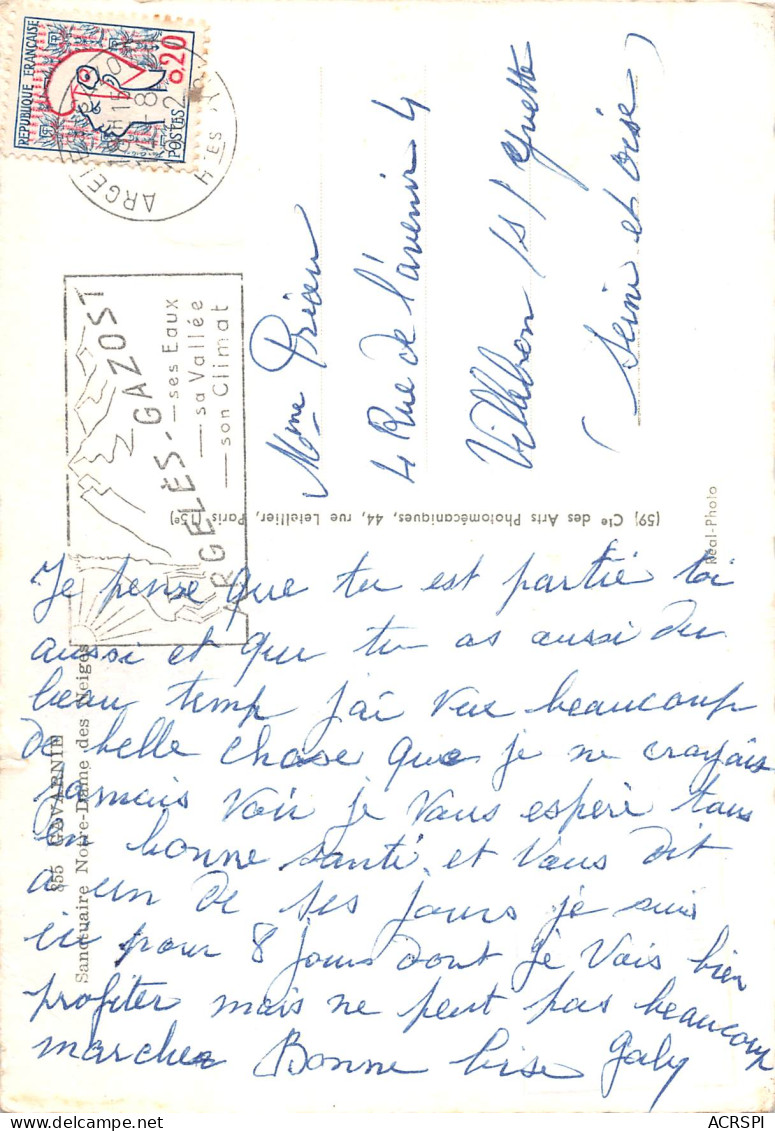 REPUBLIQUE FRANÇAISE
0,20
POSTES
ARGELES
H 15
-8
H TES PY
ARGELÈS-GAZOST
ses Eaux
sa Vallée
son Climat
Mme Prieu
4 Rue de l'avenir 4
Villebon /s/ Yvette
(Seine et Oise)
(59) Cie des Arts Photomécaniques, 44, rue Letellier, Paris (15e)
Réal-Photo
855 GAVARNIE
Sanctuaire Notre-Dame des Neiges
Je pense que tu est partie toi
aussi et que tu as aussi du
beau temp j'ai vue beaucoup
de belle chose que je ne crayais
jamais voir je vous espère tous
en bonne santé et vous dit
a un de ses jours je suis
ici pour 8 jours dont je vais bien
profiter mais ne peut pas beaucoup
marcher Bonne bise Gaby
ACRSPI